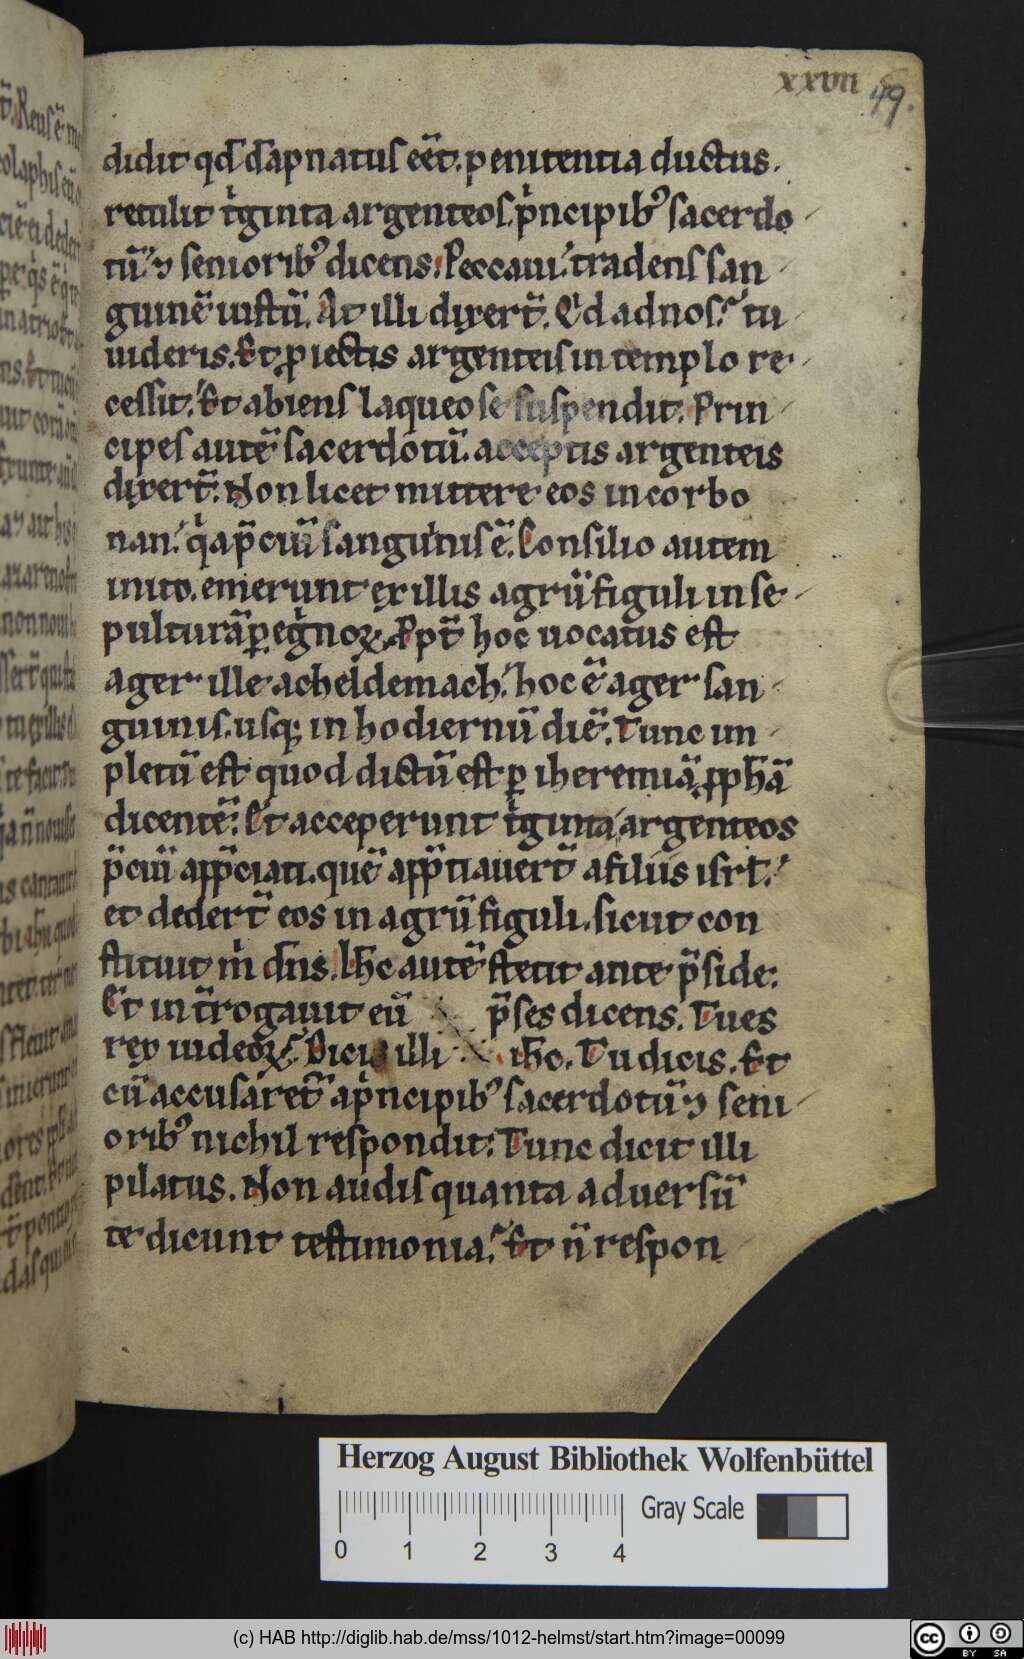 xxvii
49.
didit qđ dāpnatus eēt. penitentia ductus.
retulit tͥginta argenteos. pͥncipibꝰ sacerdo
tū ⁊ senioribꝰ dicens. Peccaui tradens san
guinē iustū. At illi dixert̄. Qͥd ad nos? tu
uideris. Et ꝓiectis argenteis in templo re
cessit. Et abiens laqueo se suspendit. Prin
cipes autē sacerdotū. acceptis argenteis
dixert̄. Non licet mittere eos in corbo
nan. qͥa p̄ciū sanguinis ē. Consilio autem
inito. emerunt ex illis agrū figuli in se
pulturā ꝑegͥnoꝝ. Ppt̄ hoc uocatus est
ager ille acheldemach. hoc ē ager san
guinis. usqꝫ in hodiernū diē. Tunc im
pletū est quod dictū est ꝑ iheremiā ꝓph̄ā
dicentē. Et acceperunt tͥginta argenteos
p̄ciū app̄ciati. quē app̄tiauert̄ a filiis isrł.
et dedert̄ eos in agrū figuli. sicut con
stituit mͥ dn̄s. Ih̄c autē stetit ante p̄side.
Et int̄rogauit eū p̄ses dicens. Tu es
rex iudeoꝝ? Dicit illi ih̄c. Tu dicis. Et
cū accusaret̄ a pͥncipibꝰ sacerdotū ⁊ seni
oribꝰ nichil respondit. Tunc dicit illi
pilatus. Non audis quanta aduersū
te dicunt testimonia? Et n̄ respon
Herzog August Bibliothek Wolfenbüttel
Gray Scale
0 1 2 3 4
(c) HAB http://diglib.hab.de/mss/1012-helmst/start.htm?image=00099
cc BY SA